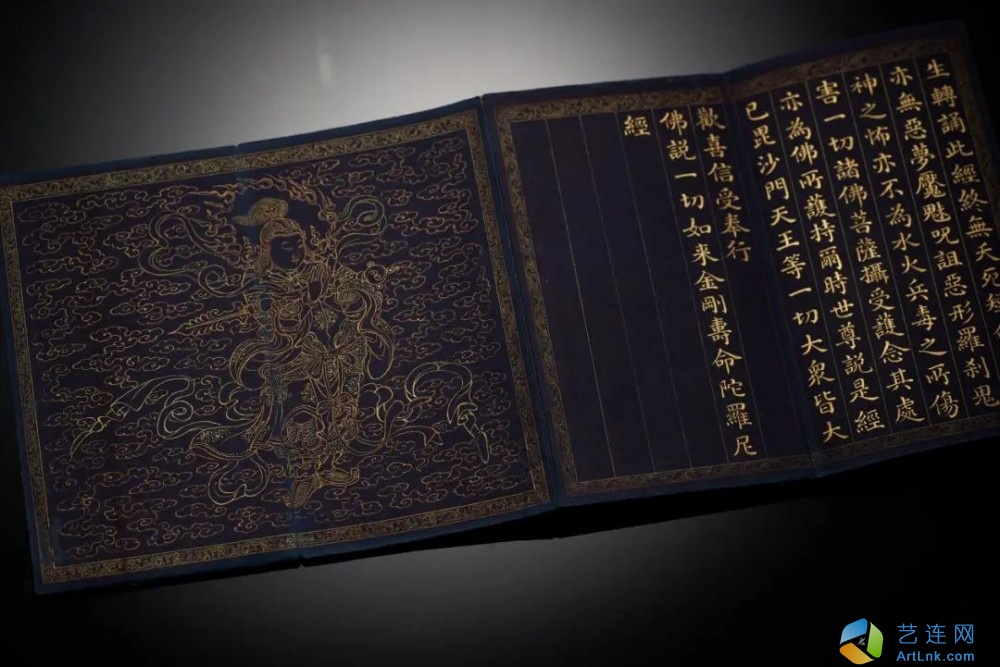 生轉誦此經終無夭死
亦無惡夢魘魅呪詛惡形羅刹鬼
神之怖亦不為水火兵毒之所傷
害一切諸佛菩薩攝受護念其處
亦為佛所護持爾時世尊說是經
已毘沙門天王等一切大衆皆大
歡喜信受奉行
佛說一切如来金剛壽命陀羅尼
經
艺连网
ArtLnk.com